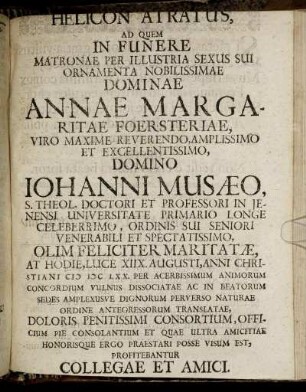 HELICON ATRATUS,
AD QUEM
IN FUNERE
MATRONAE PER ILLUSTRIA SEXUS SUI
ORNAMENTA NOBILISSIMAE
DOMINAE
ANNAE MARGA-
RITAE FOERSTERIAE,
VIRO MAXIME REVERENDO, AMPLISSIMO
ET EXCELLENTISSIMO,
DOMINO
IOHANNI MUSÆO,
S. THEOL. DOCTORI ET PROFESSORI IN JE-
NENSI UNIVERSITATE PRIMARIO LONGE
CELEBERRIMO, ORDINIS SUI SENIORI
VENERABILI ET SPECTATISSIMO,
OLIM FELICITER MARITATÆ,
AT HODIE, LUCE XIIX. AUGUSTI, ANNI CHRI-
STIANI CIↃ IↃC LXX. PER ACERBISSIMUM ANIMORUM
CONCORDIUM VULNUS DISSOCIATAE AC IN BEATORUM
SEDES AMPLEXUSVE DIGNORUM PERVERSO NATURAE
ORDINE ANTEGRESSORUM TRANSLATAE,
DOLORIS PENITISSIMI CONSORTIUM, OFFI-
CIUM PIE CONSOLANTIUM ET QUAE ULTRA AMICITIAE
HONORISQUE ERGO PRAESTARI POSSE VISUM EST,
PROFITEBANTUR
COLLEGAE ET AMICI.